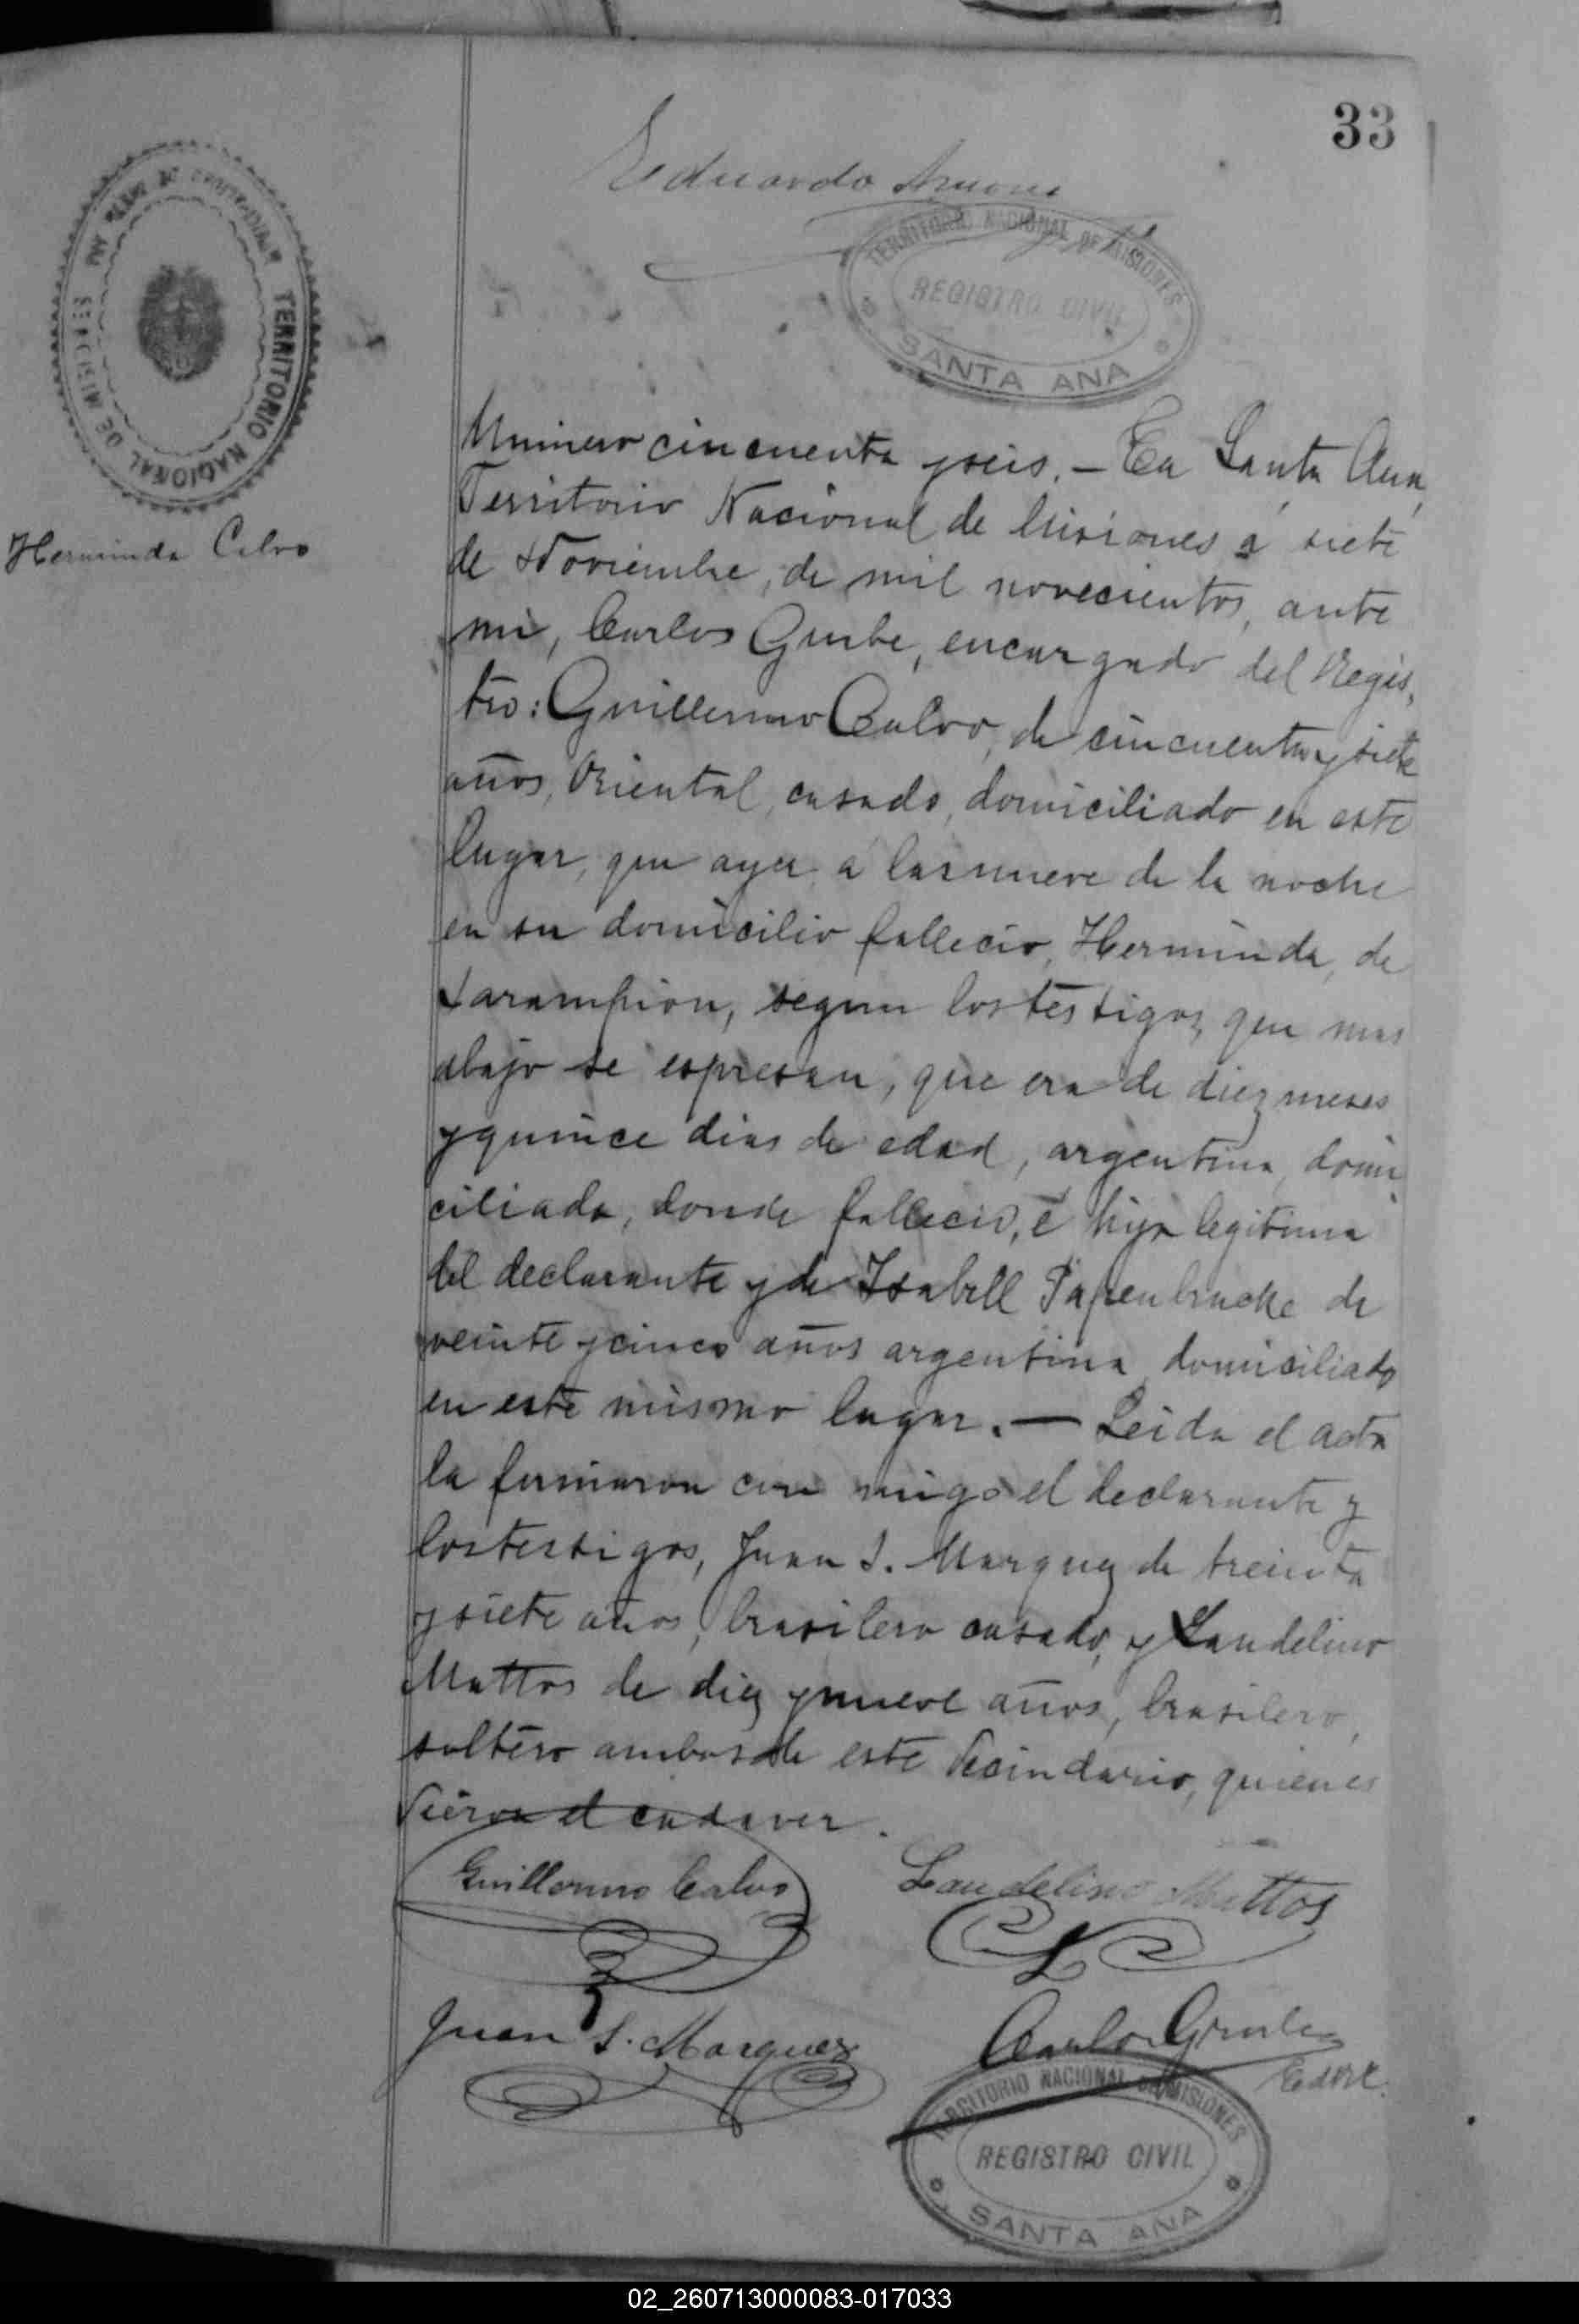 33
Eduardo
TERRITORIO NACIONAL DE MISIONES
REGISTRO CIVIL
SANTA ANA
TERRITORIO NACIONAL DE MISIONES
Herminda Calvo
Numero cincuenta y seis. – En Santa Ana,
Territorio Nacional de Misiones á siete
de Noviembre, de mil novecientos, ante
mi, Carlos Grube, encargado del Regis-
tro: Guillermo Calvo, de cincuenta y siete
años, Oriental, casado, domiciliado en este
lugar, que ayer á las nueve de la noche
en su domicilio fallecio, Herminda, de
Sarampion, segun los testigos, que mas
abajo se espresan, que era de diez meses
y quince dias de edad, argentina, domi-
ciliada, donde fallecio, é hija legitima
del declarante y de Isabell Papenbracke de
veinte y cinco años argentina domiciliado
en este mismo lugar. — Leida el acta
la firmaron con migo el declarante y
los testigos, Juan S. Marquez de treinta
y siete años, brasilero casado, y Laudelino
Mattos de diez y nueve años, brasilero,
soltero ambos de este Vecindario, quienes
Vieron el cadaver.
Guillermo Calvo
Laudelino Mattos
Juan S. Marquez
Carlos Grube
TERRITORIO NACIONAL DE MISIONES
REGISTRO CIVIL
SANTA ANA
02_260713000083-017033